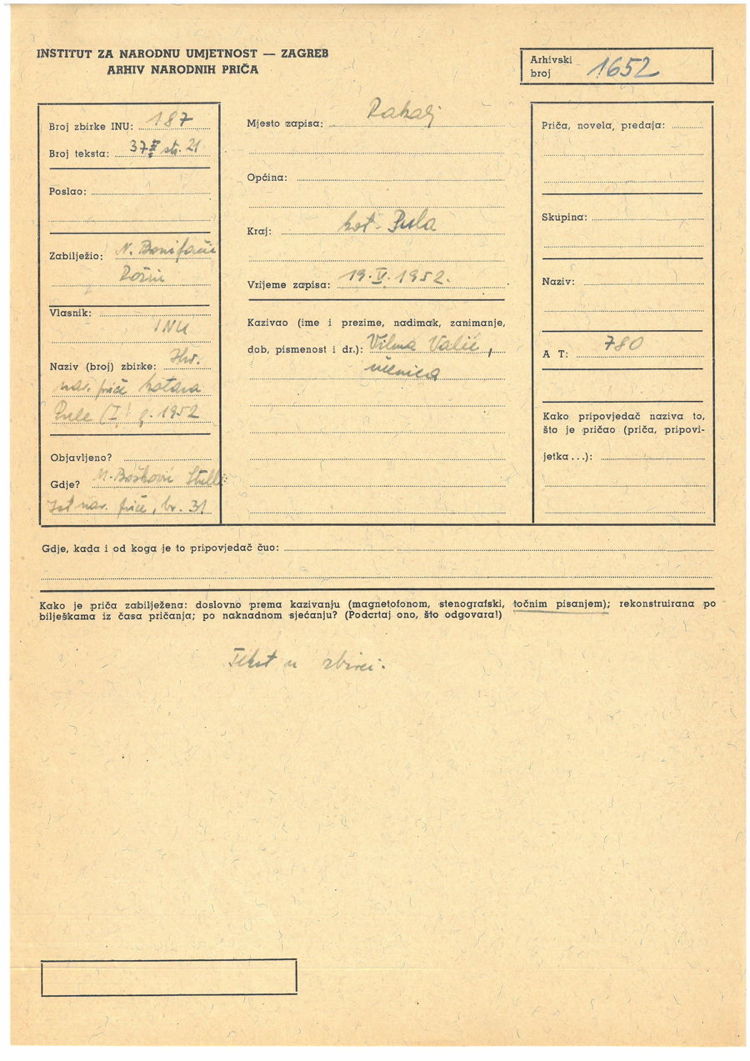 INSTITUT ZA NARODNU UMJETNOST — ZAGREB
ARHIV NARODNIH PRIČA
Arhivski
broj 1652
Broj zbirke INU: 187
Broj teksta: 37 str. 21
Poslao:
Zabilježio: N. Bonifačić
Rožin
Vlasnik:
INU
Naziv (broj) zbirke: Hrv.
nar. priče kotara
Pule (I) g. 1952
Objavljeno?
Gdje? M. Bošković Stulli
Ist. nar. priče, br. 31
Mjesto zapisa: Rakalj
Općina:
Kraj: kot. Pula
Vrijeme zapisa: 19. V. 1952.
Kazivao (ime i prezime, nadimak, zanimanje,
dob, pismenost i dr.): Vilma Valić,
učenica
Priča, novela, predaja:
Skupina:
Naziv:
A T: 780
Kako pripovjedač naziva to,
što je pričao (priča, pripovi-
jetka...):
Gdje, kada i od koga je to pripovjedač čuo:
Kako je priča zabilježena: doslovno prema kazivanju (magnetofonom, stenografski, točnim pisanjem); rekonstruirana po
bilješkama iz časa pričanja; po naknadnom sjećanju? (Podcrtaj ono, što odgovara!)
Tekst u zbirci.